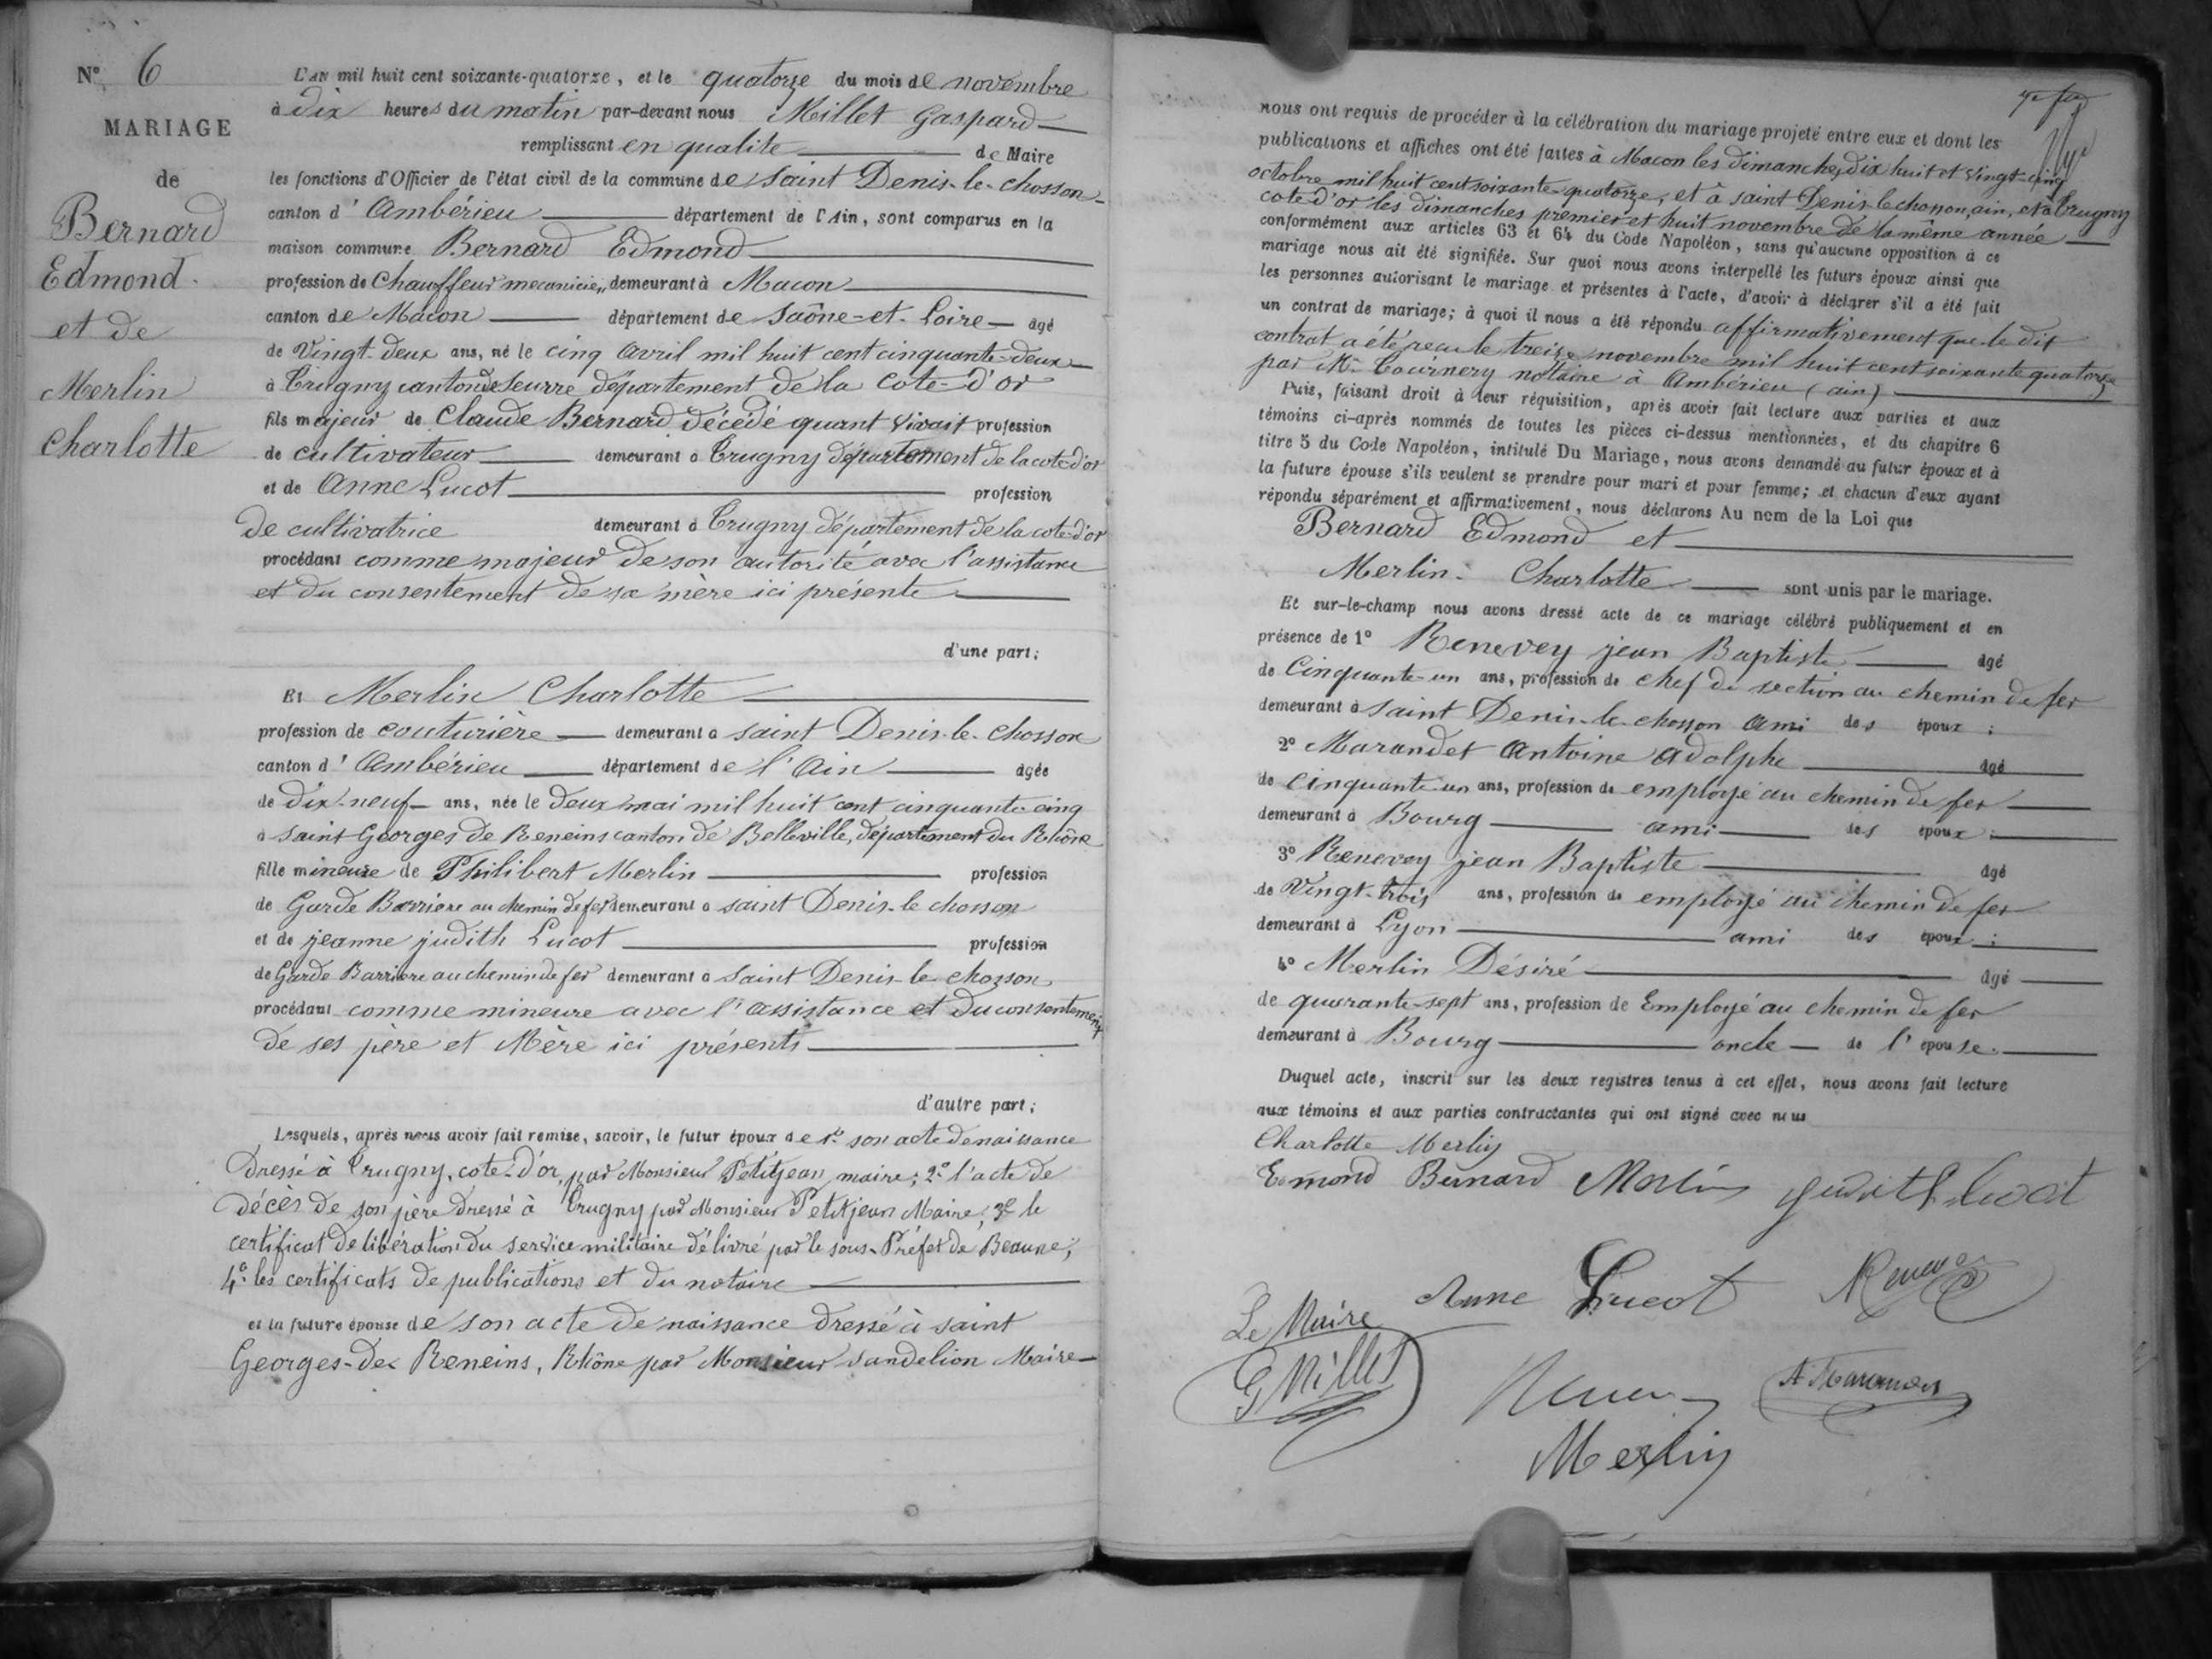 N° 6
MARIAGE
de
Bernard
Edmond.
et de
Merlin
Charlotte
L'AN mil huit cent soixante-quatorze, et le quatorze du mois de novembre
à dix heures du matin par-devant nous Millet Gaspard
remplissant en qualite de Maire
les fonctions d'Officier de l'état civil de la commune de Saint Denis-le-chosson
canton d'Ambérieu département de l'Ain, sont comparus en la
maison commune Bernard Edmond
profession de Chauffeur mecanicien demeurant à Macon
canton de Macon département de Saône-et-Loire âgé
de Vingt-deux ans, né le cinq avril mil huit cent cinquante-deux
à Trugny canton de Seurre département de la Cote-d'or
fils majeur de Claude Bernard décédé quant vivait profession
de cultivateur demeurant à Trugny département de la cote-d'or
et de Anne Lucot profession
de cultivatrice demeurant à Trugny département de la cote-d'or
procédant comme majeur de son autorité avec l'assistance
et du consentement de sa mère ici présente
d'une part;
Et Merlin Charlotte
profession de couturière demeurant à saint Denis-le-Chosson
canton d'Ambérieu département de l'Ain âgée
de dix-neuf ans, née le deux mai mil huit cent cinquante-cinq
à saint Georges de Reneins canton de Belleville, département du Rhône
fille mineure de Philibert Merlin profession
de Garde Barriere au chemin de fer demeurant à saint Denis-le chosson
et de jeanne judith Lucot profession
de Garde Barriere au chemin de fer demeurant à Saint Denis-le-chosson
procédant comme mineure avec l'assistance et du consentement
de ses père et Mère ici présents
d'autre part;
Lesquels, après nous avoir fait remise, savoir, le futur époux de 1° son acte de naissance
dressé à Trugny, cote-d'or, par Monsieur Petitjean, maire; 2° l'acte de
décès de son père dressé à Trugny par Monsieur Petitjean Maire; 3° le
certificat de libération du service militaire délivré par le sous-Préfet de Beaune;
4° les certificats de publications et du notaire
et la future épouse de son acte de naissance dressé à saint
Georges-de Reneins, Rhône par Monsieur Sandelion Maire
nous ont requis de procéder à la célébration du mariage projeté entre eux et dont les
publications et affiches ont été faites à Macon les dimanches dix huit et Vingt-cinq
octobre mil huit cent soixante-quatorze, et à saint Denis-le chosson, ain, et à Trugny
cote-d'or les dimanches premier et huit novembre de la même année
conformément aux articles 63 et 64 du Code Napoléon, sans qu'aucune opposition à ce
mariage nous ait été signifiée. Sur quoi nous avons interpellé les futurs époux ainsi que
les personnes autorisant le mariage et présentes à l'acte, d'avoir à déclarer s'il a été fait
un contrat de mariage; à quoi il nous a été répondu affirmativement que le dit
contrat a été reçu le treize novembre mil huit cent soixante quatorze
par Me Tournery notaire à Ambérieu (ain)
Puis, faisant droit à leur réquisition, après avoir fait lecture aux parties et aux
témoins ci-après nommés de toutes les pièces ci-dessus mentionnées, et du chapitre 6
titre 5 du Code Napoléon, intitulé Du Mariage, nous avons demandé au futur époux et à
la future épouse s'ils veulent se prendre pour mari et pour femme; et chacun d'eux ayant
répondu séparément et affirmativement, nous déclarons Au nom de la Loi que
Bernard Edmond et
Merlin Charlotte sont unis par le mariage.
Et sur-le-champ nous avons dressé acte de ce mariage célébré publiquement et en
présence de 1° Renevey jean Baptiste âgé
de Cinquante-un ans, profession de chef de section au chemin de fer
demeurant à Saint Denis-le-chosson ami des époux;
2° Marandet Antoine Adolphe âgé
de cinquante-un ans, profession de employé au chemin de fer
demeurant à Bourg ami des époux;
3° Renevey jean Baptiste âgé
de Vingt-trois ans, profession de employé au chemin de fer
demeurant à Lyon ami des époux;
4° Merlin Désiré âgé
de quarante-sept ans, profession de Employé au chemin de fer
demeurant à Bourg oncle de l'épouse.
Duquel acte, inscrit sur les deux registres tenus à cet effet, nous avons fait lecture
aux témoins et aux parties contractantes qui ont signé avec nous
Charlotte Merlin
Edmond Bernard Merlin judith lucot
Anne Lucot Renevey
Le Maire
G Millet A Marandet
Merlin